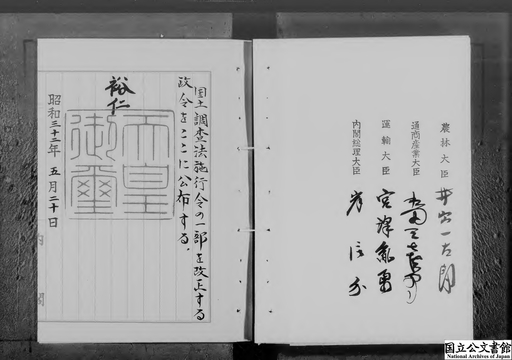 農林大臣 井出一太郎
通商産業大臣 水田三喜男
運輸大臣 宮澤胤勇
内閣総理大臣 岸信介
国土調査法施行令の一部を改正する
政令をここに公布する。
裕仁
天皇
御璽
昭和三十二年 五月二十日
国立公文書館
National Archives of Japan